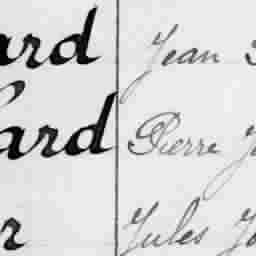 ard Jean
ard Pierre
r Jules